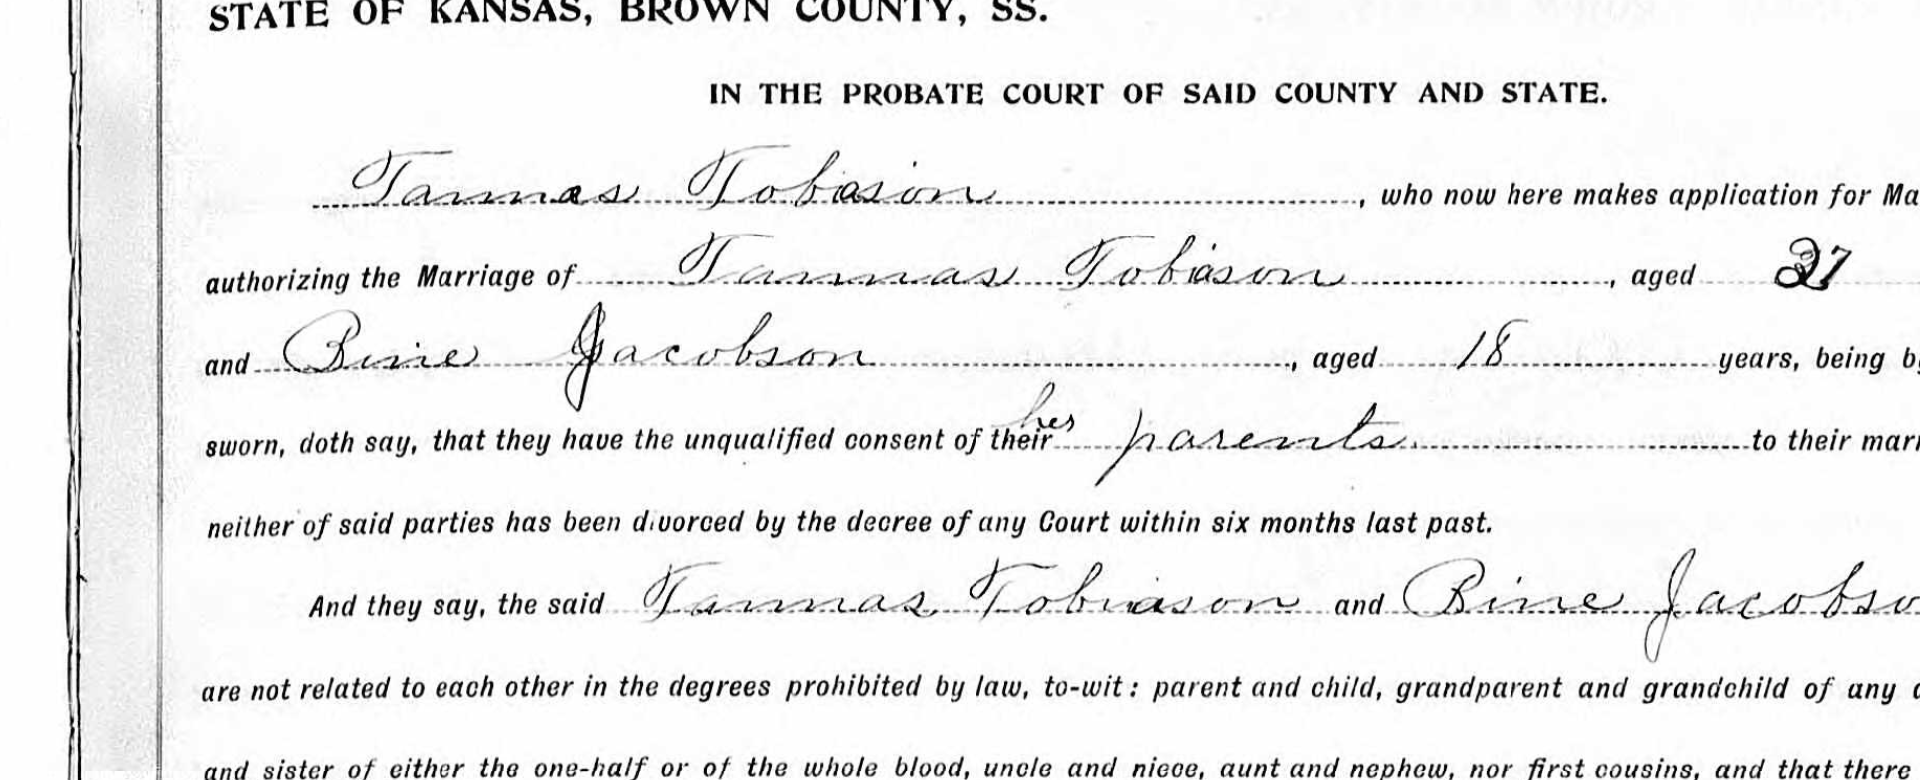 STATE OF KANSAS, BROWN COUNTY, SS.
IN THE PROBATE COURT OF SAID COUNTY AND STATE.
Tannas Tobiason, who now here makes application for Ma
authorizing the Marriage of Tannas Tobiason, aged
and Bine Jacobson, aged 18 years, being b
her
sworn, doth say, that they have the unqualified consent of their parents to their marr
neither of said parties has been divorced by the decree of any Court within six months last past.
And they say, the said Tannas Tobiason and Bine Jacobso
are not related to each other in the degrees prohibited by law, to-wit: parent and child, grandparent and grandchild of any
and sister of either the one-half or of the whole blood, uncle and niece, aunt and nephew, nor first cousins, and that there